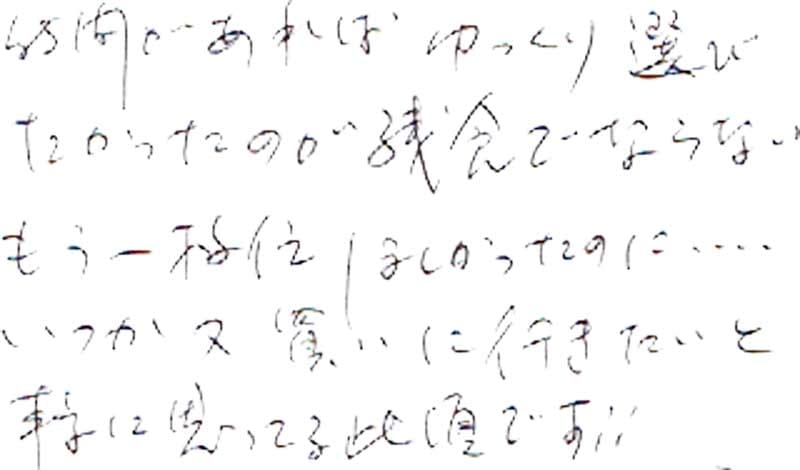 時間があればゆっくり選び
たかったのが残念でならない
もう一枚位ほしかったのに……
いつか又買いに行きたいと
事に思ってる此頃です!!